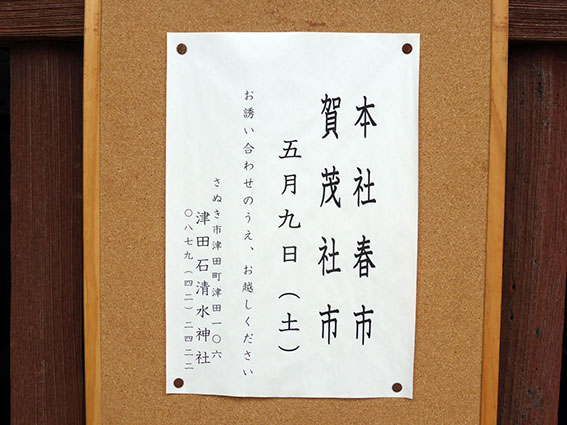 本社春市
賀茂社市
五月九日（土）
お誘い合わせのうえ、お越しください
さぬき市津田町津田一〇六
津田石清水神社
〇八七九（四二）二四二二